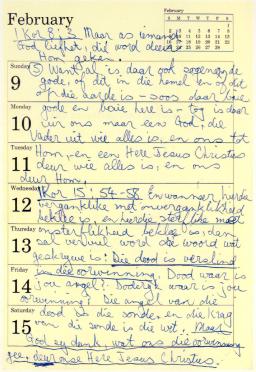 February
February
S M T W T F S
1 Kor 8:3 Maar as iemand
God liefhet, dié word deur
Hom geken.
Sunday
9
(5) Want al is daar ook sogenaamde
gode, of dit in die hemel en of dit
op die aarde is – soos daar baie
Monday
10
gode en baie here is – tog is daar
vir ons maar een God: die
Vader uit wie alles is, en ons tot
Tuesday
11
Hom, en een Here Jesus Christus
deur wie alles is, en ons
deur Hom.
Wednesday
12
1 Kor 15: 54-58. En wanneer hierdie
verganklike met onverganklikheid
beklee is, en hierdie sterflike met
Thursday
13
onsterflikheid beklee is, dan
sal vervul word die woord wat
geskrywe is: Die dood is verslind
Friday
14
in die oorwinning. Dood waar is
jou angel? Doderyk waar is jou
oorwinning? Die angel van die
Saturday
15
dood is die sonde, en die krag
van die sonde is die wet. Maar
God sy dank, wat ons die oorwinning
gee deur onse Here Jesus Christus.